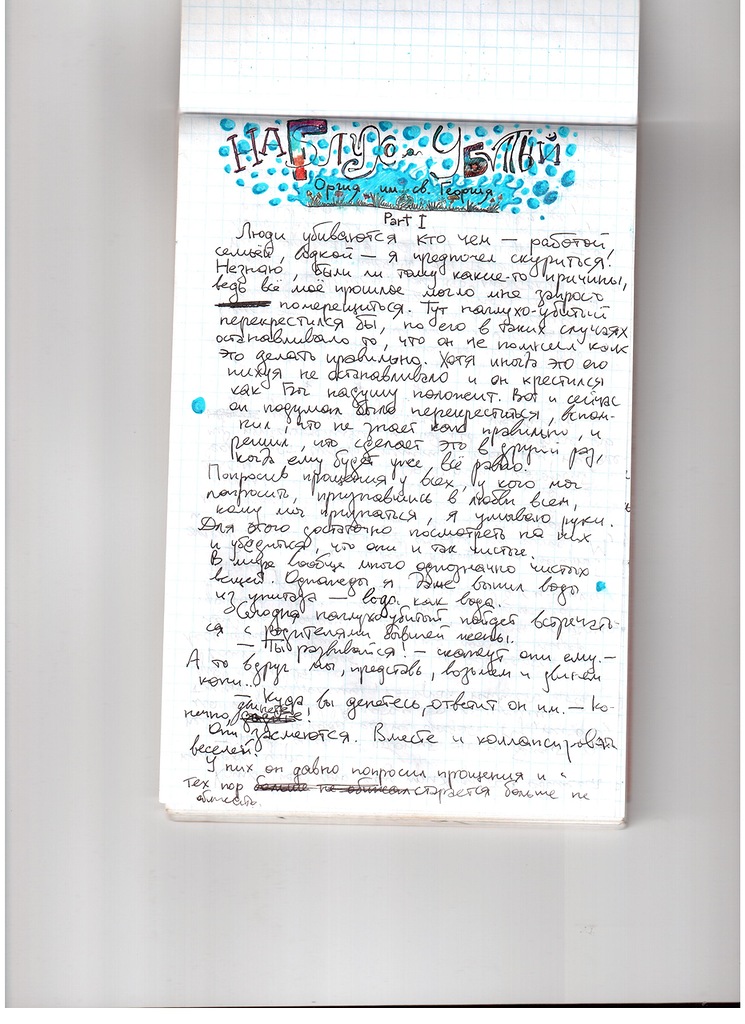 НАГЛУХО-УБИТЫЙ
Оргия им. св. Георгия
Part I
Люди убиваются кто чем — работой,
семьёй, водкой — я предпочёл скуриться.
Незнаю, были ли тому какие-то причины,
ведь всё моё прошлое могло мне запросто
померещиться. Тут наглухо-убитый
перекрестился бы, но его в таких случаях
останавливало то, что он не помнил как
это делать правильно. Хотя иногда это его
нихуя не останавливало и он крестился
как Бог надушу положит. Вот и сейчас
он подумал было перекреститься, вспом-
нил, что не знает как правильно, и
решил, что сделает это в другой раз,
когда ему будет уже всё равно.
Попросив прощения у всех, у кого мог
попросить, признавшись в любви всем,
кому мог признаться, я умываю руки.
Для этого достаточно посмотреть на них
и убедиться, что они и так чистые.
В мире вообще много однозначно чистых
вещей. Однажды я даже выпил воды
из унитаза — вода как вода.
Сегодня наглухо-убитый пойдет встречать-
ся с родителями бывшей жены.
— Ты развивайся! — скажут они ему. —
А то вдруг мы, представь, возьмем и двинем
кони..
— Куда вы денетесь, ответит он им. — Ко-
нечно, двинете!
Они засмеются. Вместе и коллапсировать
веселей.
У них он давно попросил прощения и с
тех пор старается больше не
обижать.